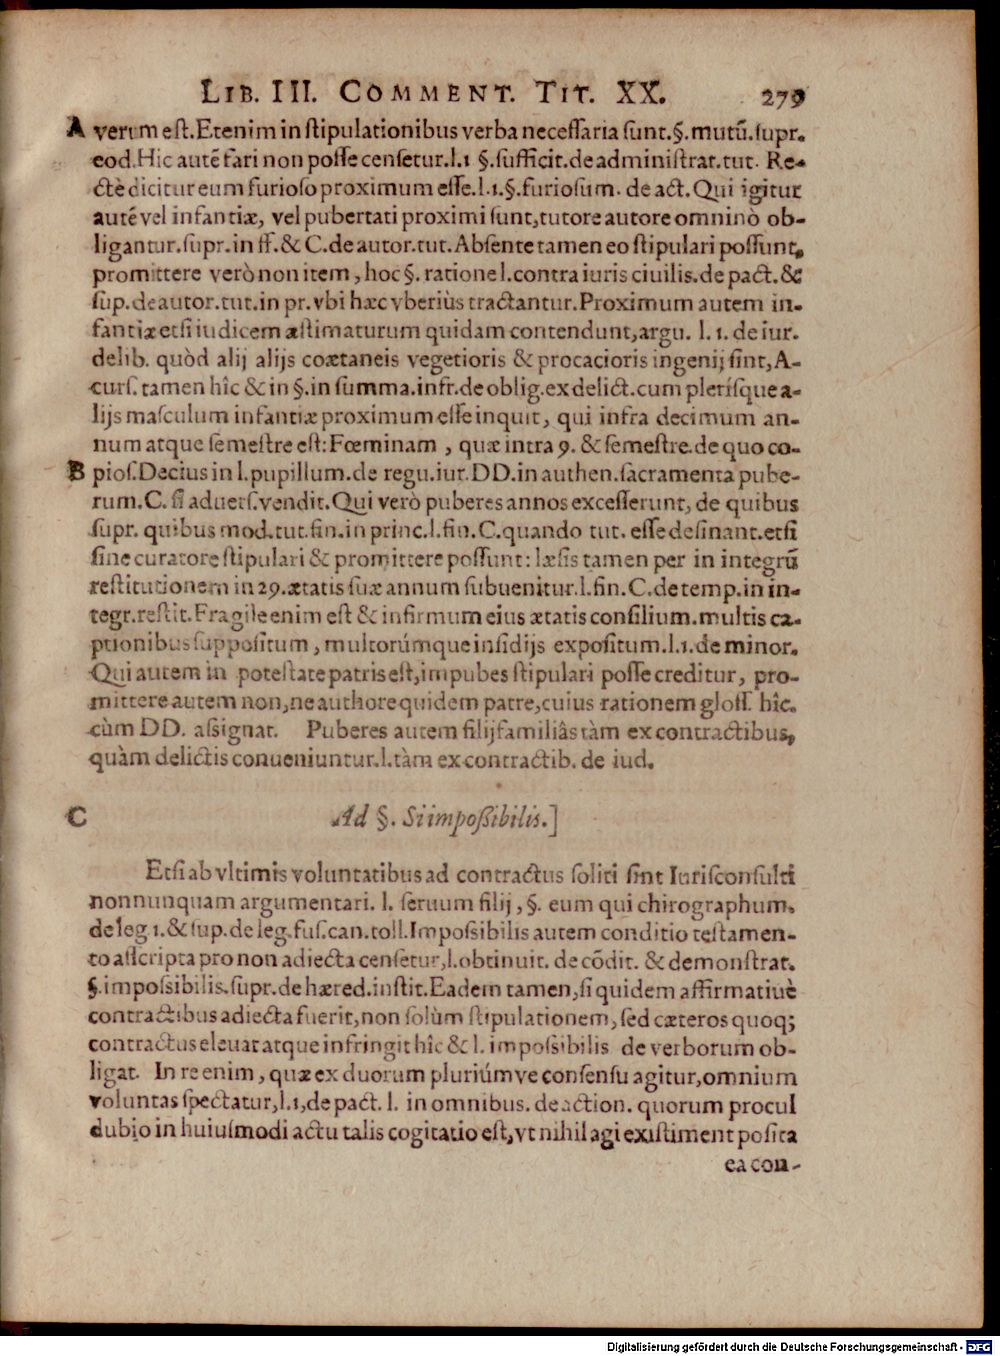 LIB. III. COMMENT. TIT. XX. 279
A verum est. Etenim in stipulationibus verba necessaria sunt. §. mutū. supr.
eod. Hic autē fari non posse censetur. l. 1 §. sufficit. de administrat. tut. Re-
ctè dicitur eum furioso proximum esse. l. 1. §. furiosum. de act. Qui igitur
autē vel infantiæ, vel pubertati proximi sunt, tutore autore omninò ob-
ligantur. supr. in ff. & C. de autor. tut. Absente tamen eo stipulari possunt,
promittere verò non item, hoc §. ratione l. contra iuris ciuilis. de pact. &
sup. de autor. tut. in pr. vbi hæc vberiùs tractantur. Proximum autem in-
fantiæ etsi iudicem æstimaturum quidam contendunt, argu. l. 1. de iur.
delib. quòd alij alijs coætaneis vegetioris & procacioris ingenij sint, A-
curs. tamen hîc & in §. in summa. infr. de oblig. ex delict. cum plerísque a-
lijs masculum infantiæ proximum esse inquit, qui infra decimum an-
num atque semestre est: Fœminam, quæ intra 9. & semestre. de quo co-
B pios. Decius in l. pupillum. de regu. iur. DD. in authen. sacramenta pube-
rum. C. si aduers. vendit. Qui verò puberes annos excesserunt, de quibus
supr. quibus mod. tut. fin. in princ. l. fin. C. quando tut. esse desinant. etsi
sine curatore stipulari & promittere possunt: læsis tamen per in integrū
restitutionem in 29. ætatis suæ annum subuenitur. l. fin. C. de temp. in in-
tegr. restit. Fragile enim est & infirmum eius ætatis consilium. multis ca-
ptionibus suppositum, multorúmque insidijs expositum. l. 1. de minor.
Qui autem in potestate patris est, impubes stipulari posse creditur, pro-
mittere autem non, ne authore quidem patre, cuius rationem gloss. hîc.
cùm DD. assignat. Puberes autem filijfamiliâs tàm ex contractibus,
quàm delictis conueniuntur. l. tàm ex contractib. de iud.
C Ad §. Si impoßibilis.]
Etsi ab vltimis voluntatibus ad contractus soliti sint Iurisconsulti
nonnunquam argumentari. l. seruum filij, §. eum qui chirographum.
de leg 1. & sup. de leg. fus. can. toll. Impossibilis autem conditio testamen-
to asscripta pro non adiecta censetur, l. obtinuit. de cōdit. & demonstrat.
§. impossibilis. supr. de hæred. instit. Eadem tamen, si quidem affirmatiuè
contractibus adiecta fuerit, non solùm stipulationem, sed cæteros quoq;
contractus eleuat atque infringit hîc & l. impossibilis de verborum ob-
ligat. In re enim, quæ ex duorum pluriúmve consensu agitur, omnium
voluntas spectatur, l. 1, de pact. l. in omnibus. de action. quorum procul
dubio in huiusmodi actu talis cogitatio est, vt nihil agi existiment posita
ea con-
Digitalisierung gefördert durch die Deutsche Forschungsgemeinschaft - DFG